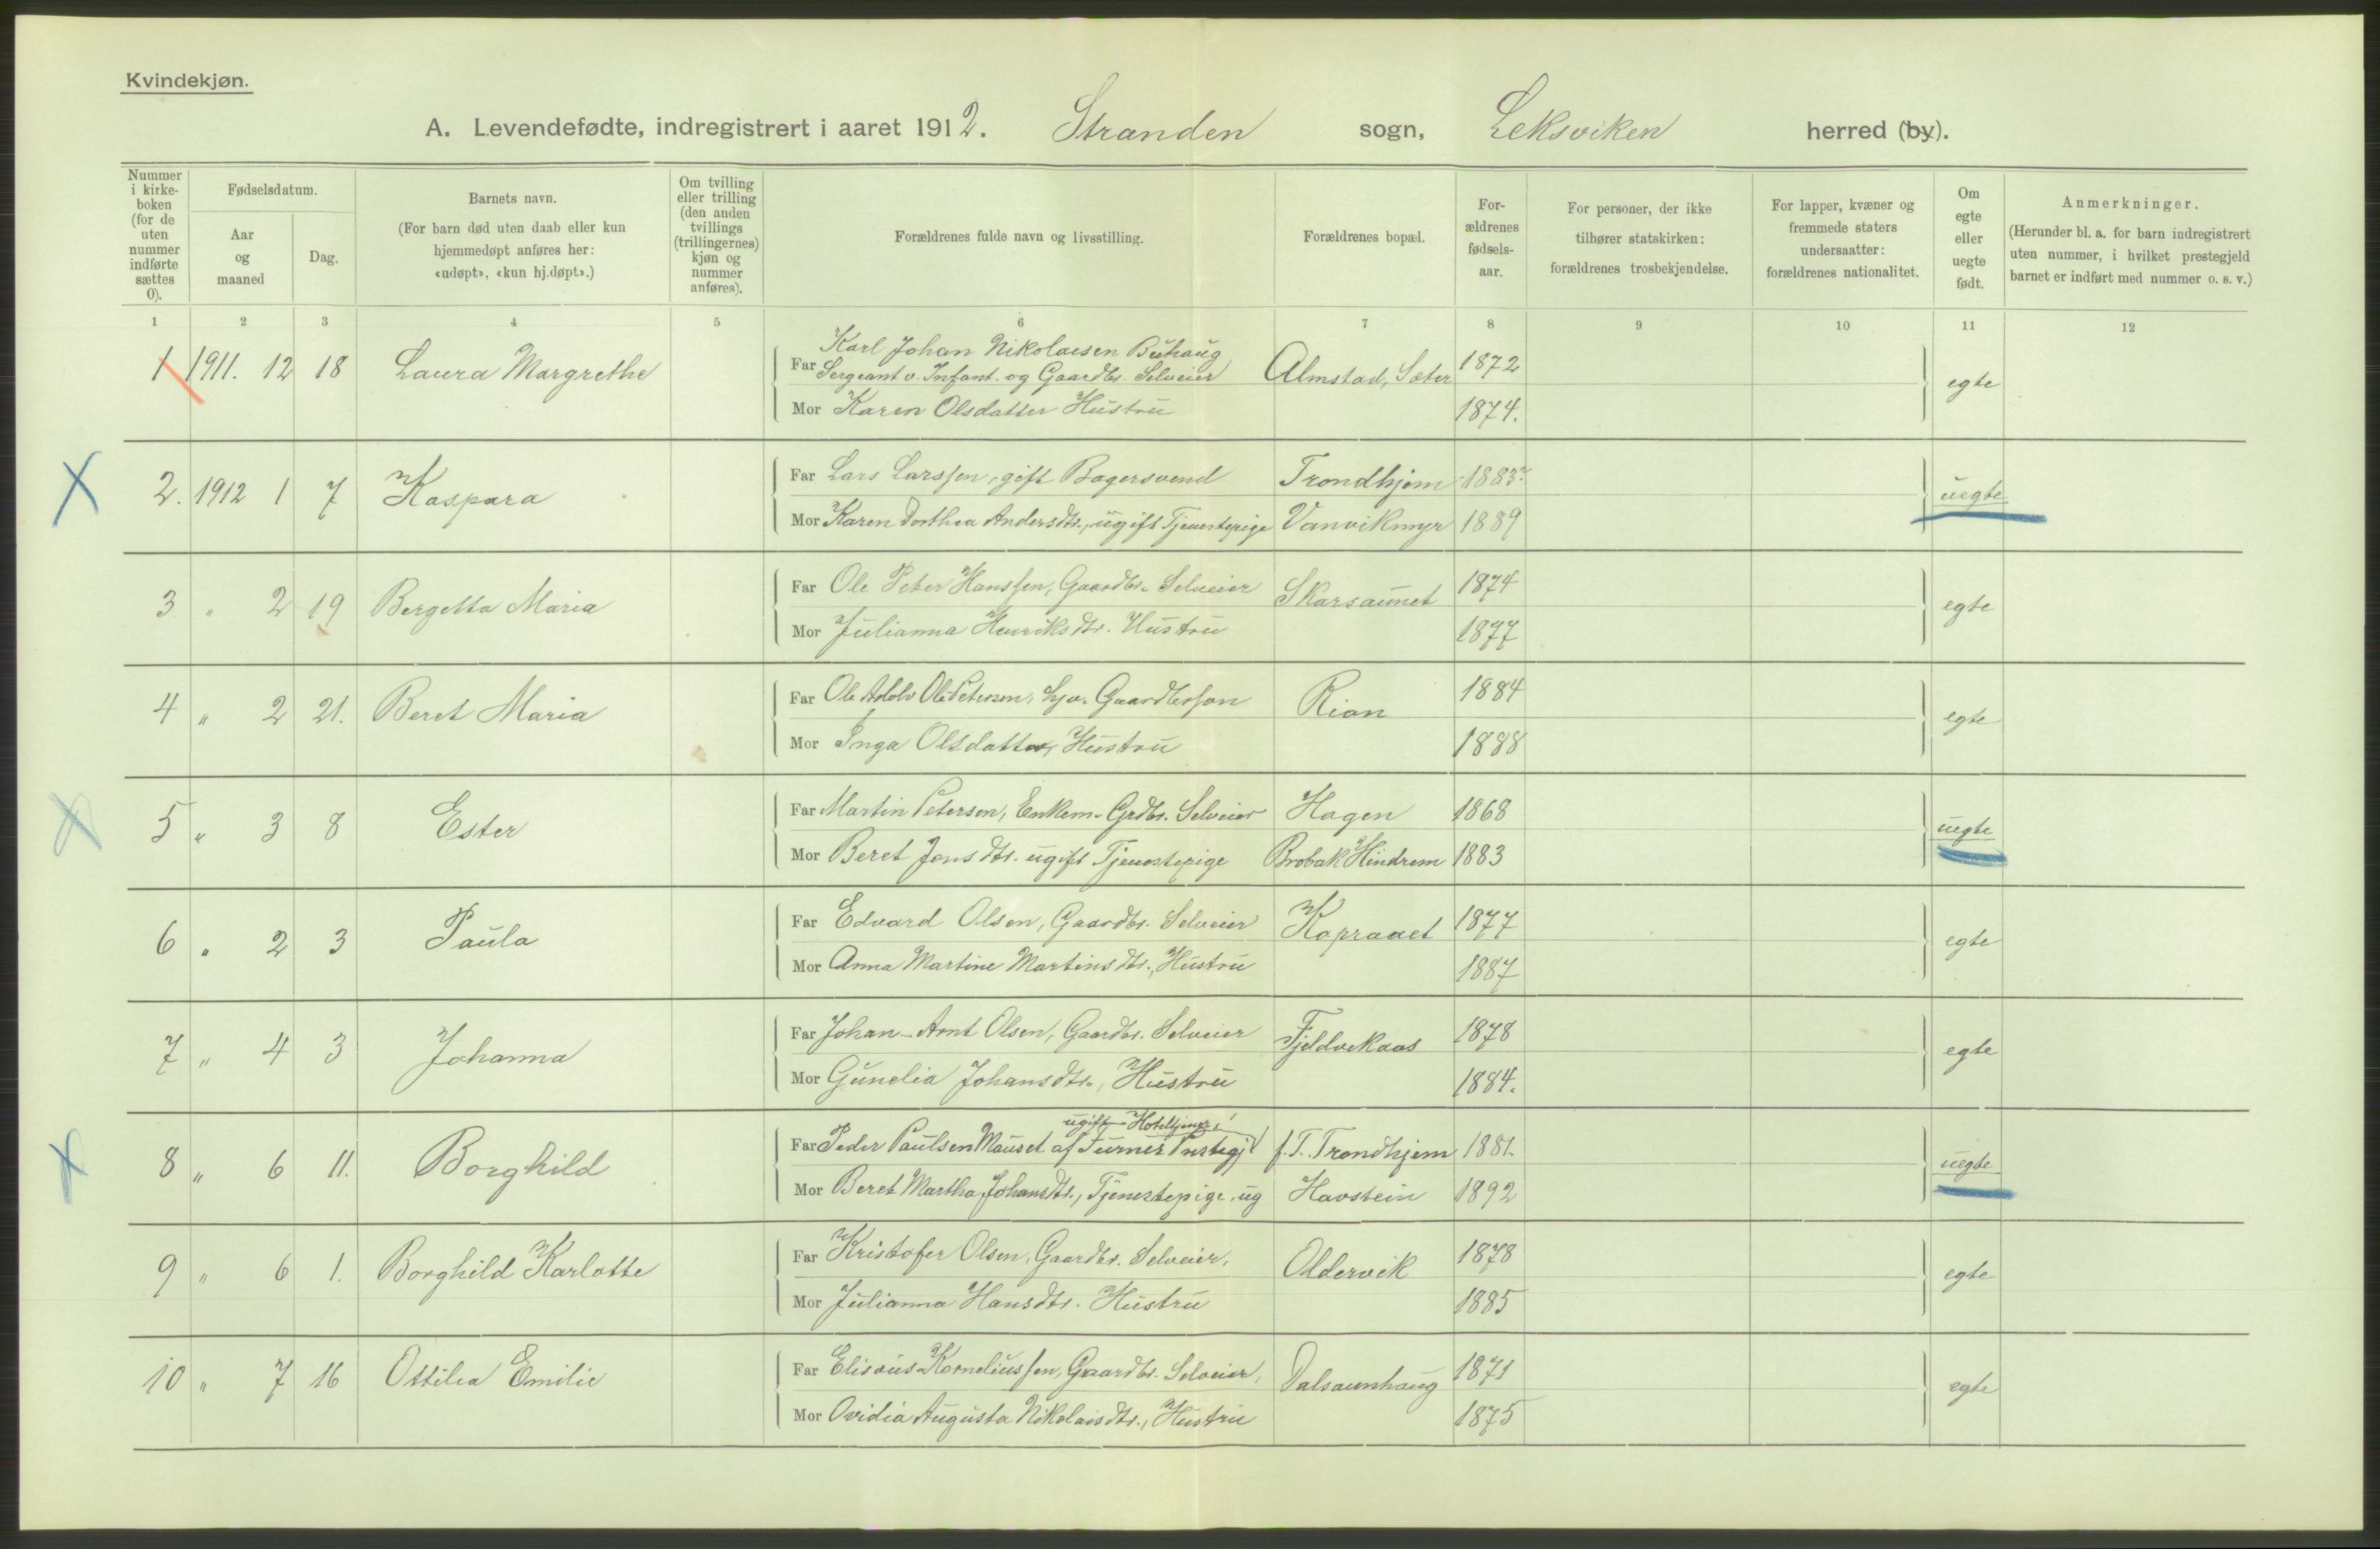 Kvindekjøn.
A. Levendefødte, indregistrert i aaret 1912. Stranden sogn, Leksviken herred (by).
Nummer i kirke-boken (for de uten nummer indførte sættes 0).
Fødselsdatum.
Aar og maaned
Dag.
Barnets navn.
(For barn død uten daab eller kun hjemmedøpt anføres her: «udøpt», «kun hj.døpt».)
Om tvilling eller trilling (den anden tvillings (trillingernes) kjøn og nummer anføres).
Forældrenes fulde navn og livsstilling.
Forældrenes bopæl.
For-ældrenes fødsels-aar.
For personer, der ikke tilhører statskirken: forældrenes trosbekjendelse.
For lapper, kvæner og fremmede staters undersaatter: forældrenes nationalitet.
Om egte eller uegte født.
Anmerkninger.
(Herunder bl. a. for barn indregistrert uten nummer, i hvilket prestegjeld barnet er indført med nummer o. s. v.)
1 2 3 4 5 6 7 8 9 10 11 12
1 1911. 12 18 Laura Margrethe
Karl Johan Nikolaisen Buhaug
Far Sergeant v. Infant. og Gaardbr. Selveier Almstad, Sæter 1872
Mor Karen Olsdatter Hustru 1874.
egte
2. 1912 1 7 Kaspara
Far Lars Larssen, gift Bagersvend Trondhjem 1883?
Mor Karen Dorthea Andersdtr., ugift Tjenestepige Vanvikmyr 1889
uegte
3 " 2 19 Bergetta Maria
Far Ole Peter Hanssen, Gaardbr. Selveier Skarsaunet 1874
Mor Julianna Henriksdtr. Hustru 1877
egte
4 " 2 21. Beret Maria
Far Ole Adolv Ole Petersen, hjv. Gaardbrsøn Rian 1884
Mor Inga Olsdatter, Hustru 1888
egte
5 " 3 8 Ester
Far Martin Petersen, Enkem. Grdbr. Selveier Hagen 1868
Mor Beret Jonsdtr. ugift Tjenestepige Brobak Hindrem 1883
uegte
6 " 2 3 Paula
Far Edvard Olsen, Gaardbr. Selveier Kopraaet 1877
Mor Anna Martine Martinsdtr., Hustru 1887
egte
7 " 4 3 Johanna
Far Johan Arnt Olsen, Gaardbr. Selveier Fjeldvekaas 1878
Mor Gunelia Johansdtr., Hustru 1884.
egte
8 " 6 11. Borghild
ugift
Far Peder Paulsen Mauset af Surnes Prestegj f. T. Trondhjem 1881.
Mor Beret Martha Johansdtr., Tjenestepige, ug Havstein 1892
uegte
9 " 6 1. Borghild Karlotte
Far Kristofer Olsen, Gaardbr. Selveier, Oldervik 1878
Mor Julianna Hansdtr. Hustru 1885
egte
10 " 7 16 Ottilia Emilie
Far Elisæus Korneliussen, Gaardbr. Selveier, Dalsaunhaug 1871
Mor Ovidia Augusta Nikolaisdtr., Hustru 1875
egte